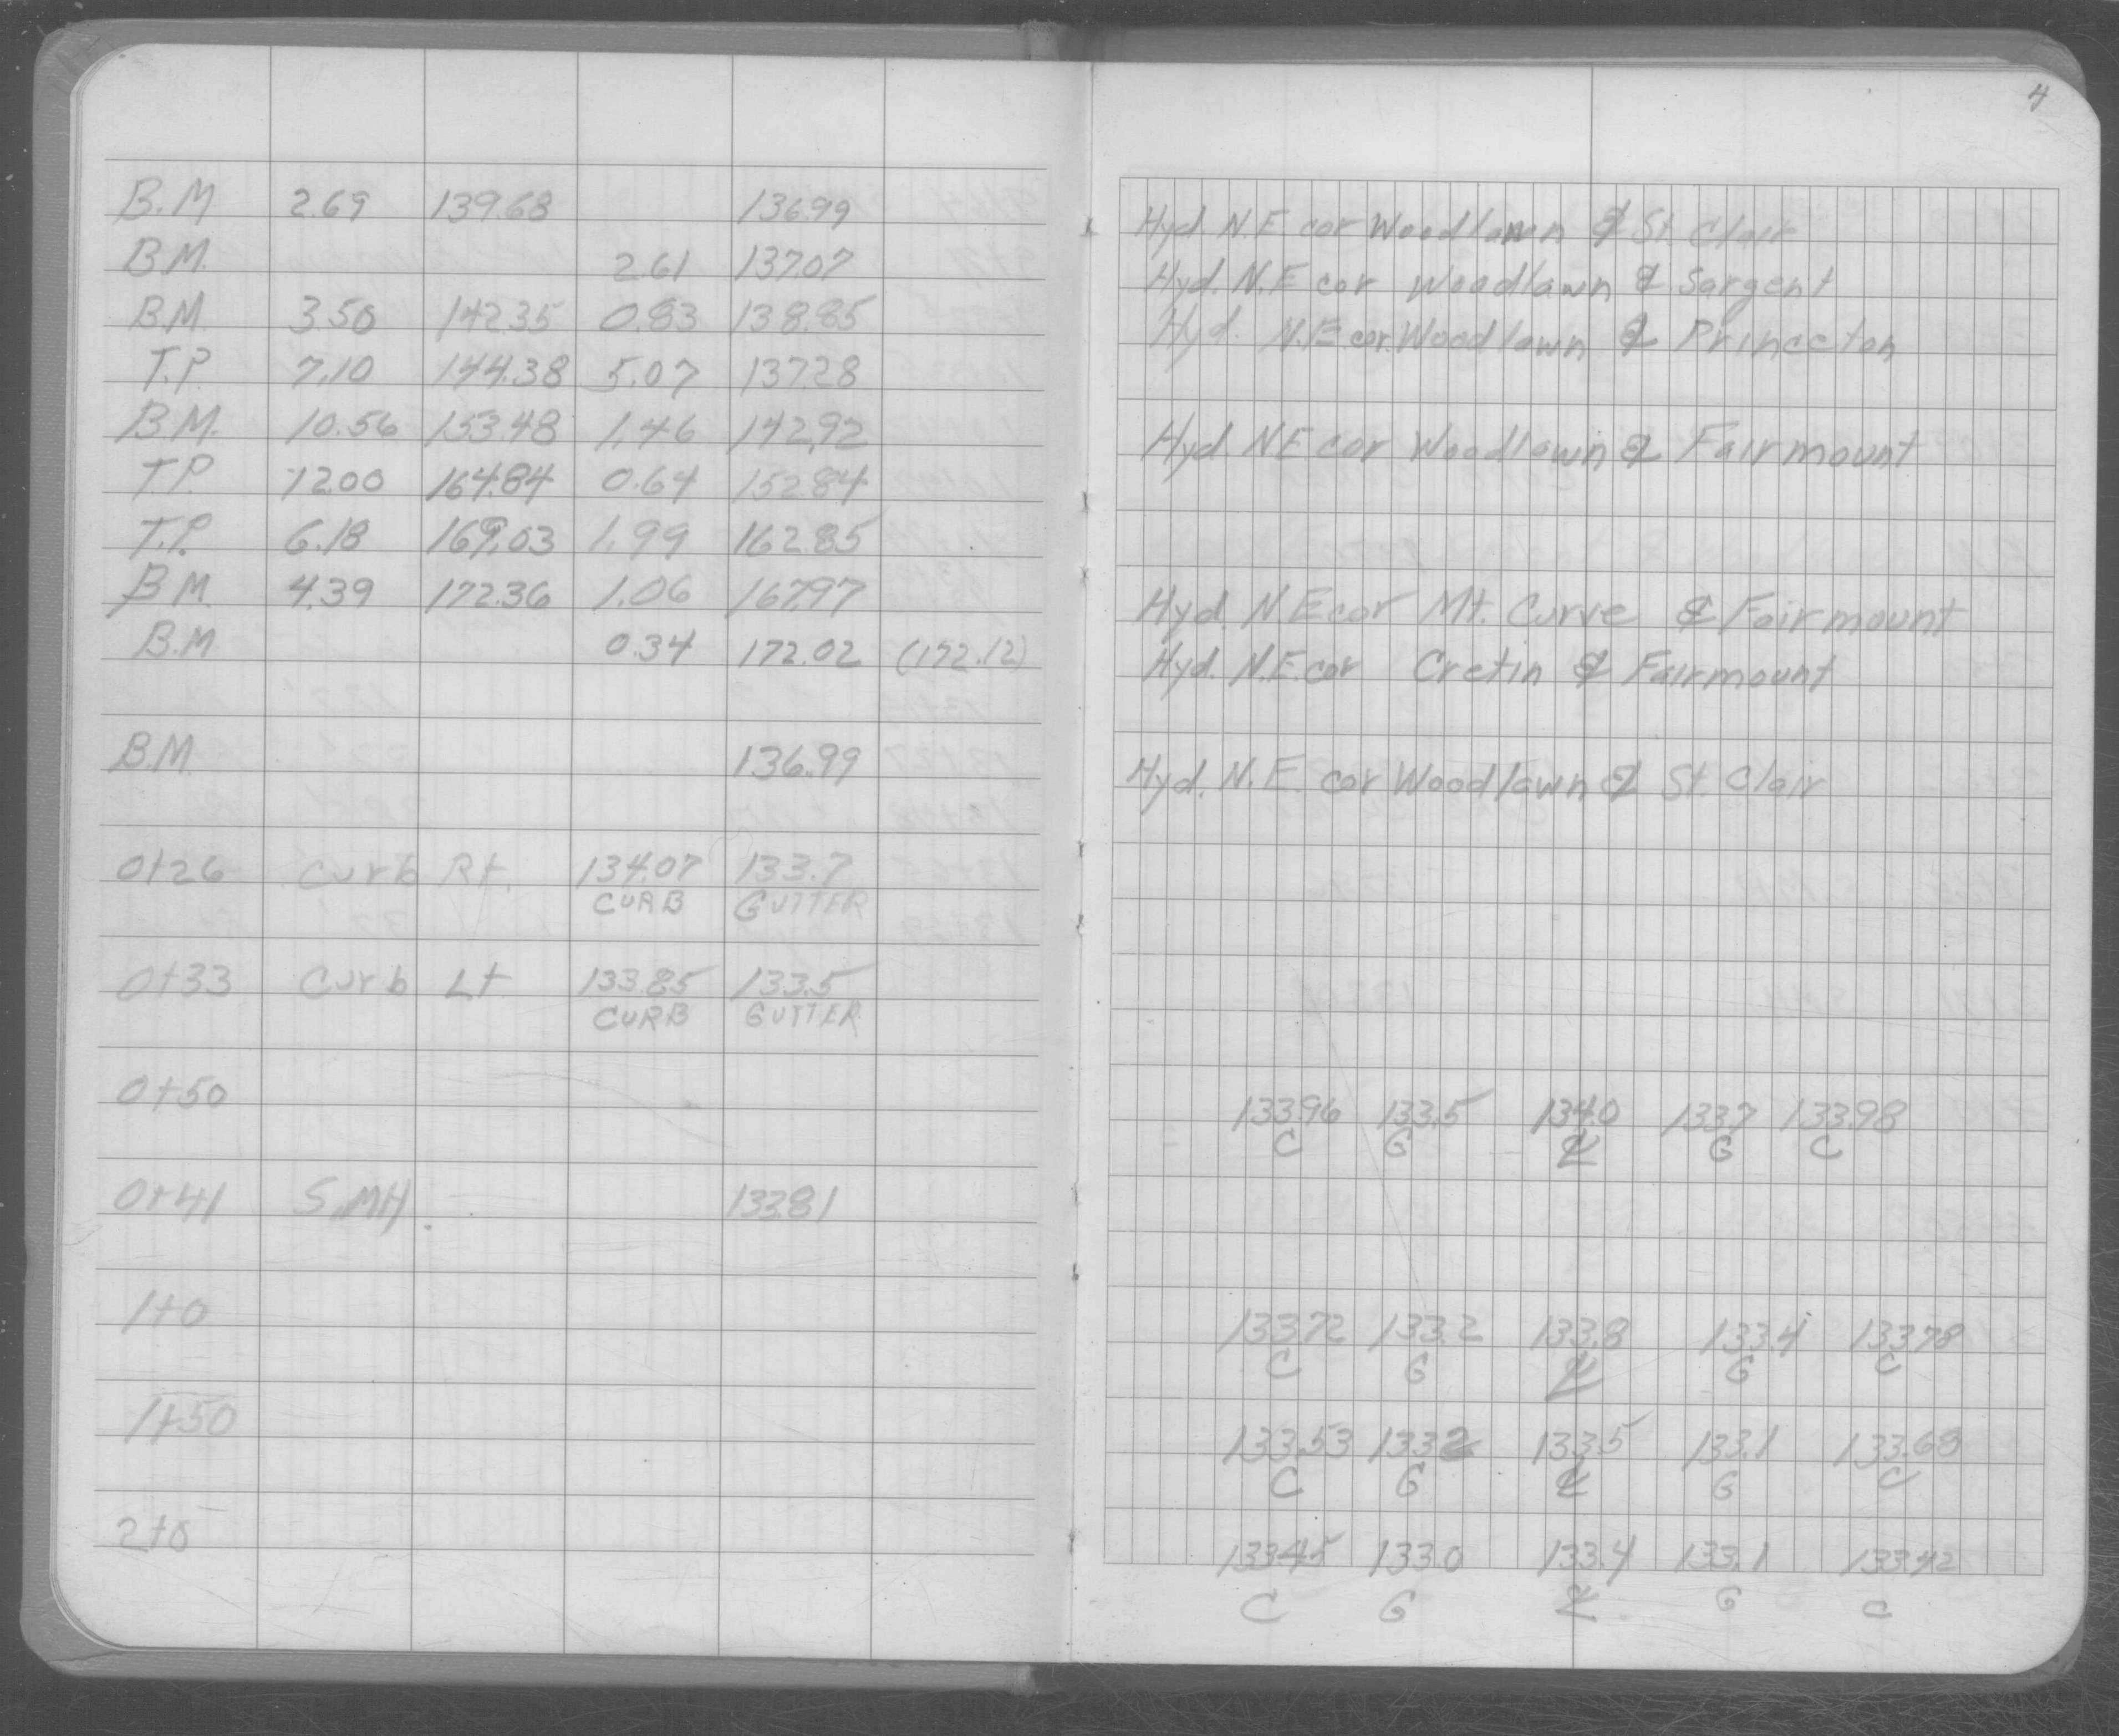 4
B.M 2.69 139.68 136.99 Hyd. N.E cor Woodlawn & St. Clair
B.M. 2.61 137.07 Hyd. N.E cor Woodlawn & Sargent
B.M. 3.50 142.35 0.83 138.85 Hyd. N.E. cor. Woodlawn & Princeton
T.P. 7.10 144.38 5.07 137.28
B.M. 10.56 153.48 1.46 142.92 Hyd. N E cor Woodlawn & Fairmount
T.P. 12.00 164.84 0.64 152.84
T.P. 6.18 169.03 1.99 162.85
B.M. 4.39 172.36 1.06 167.97 Hyd. N.E cor Mt. Curve & Fairmount
B.M 0.34 172.02 (172.12) Hyd. N.E. cor Cretin & Fairmount
B.M. 136.99 Hyd. N.E. cor Woodlawn & St. Clair
0+26 Curb Rt. 134.07 133.7
CURB GUTTER
0+33 Curb Lt 133.85 133.5
CURB GUTTER
0+50 133.96 133.5 134.0 133.7 133.98
C G ℄ G C
0+41 S.MH. 133.81
1+0 133.72 133.2 133.8 133.4 133.78
C G ℄ G C
1+50 133.53 133.2 133.5 133.1 133.68
C G ℄ G C
2+0 133.45 133.0 133.4 133.1 133.42
C G ℄ G C